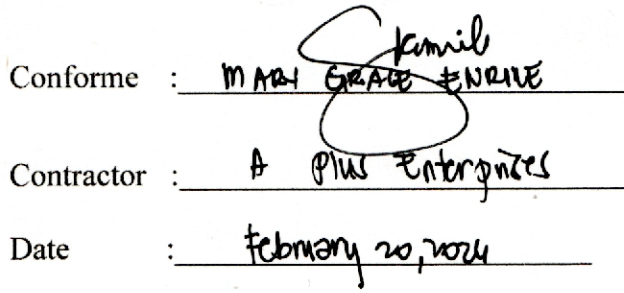 Conforme : MARY GRACE ENRILE
Contractor : A Plus Enterprises
Date : February 20, 2024